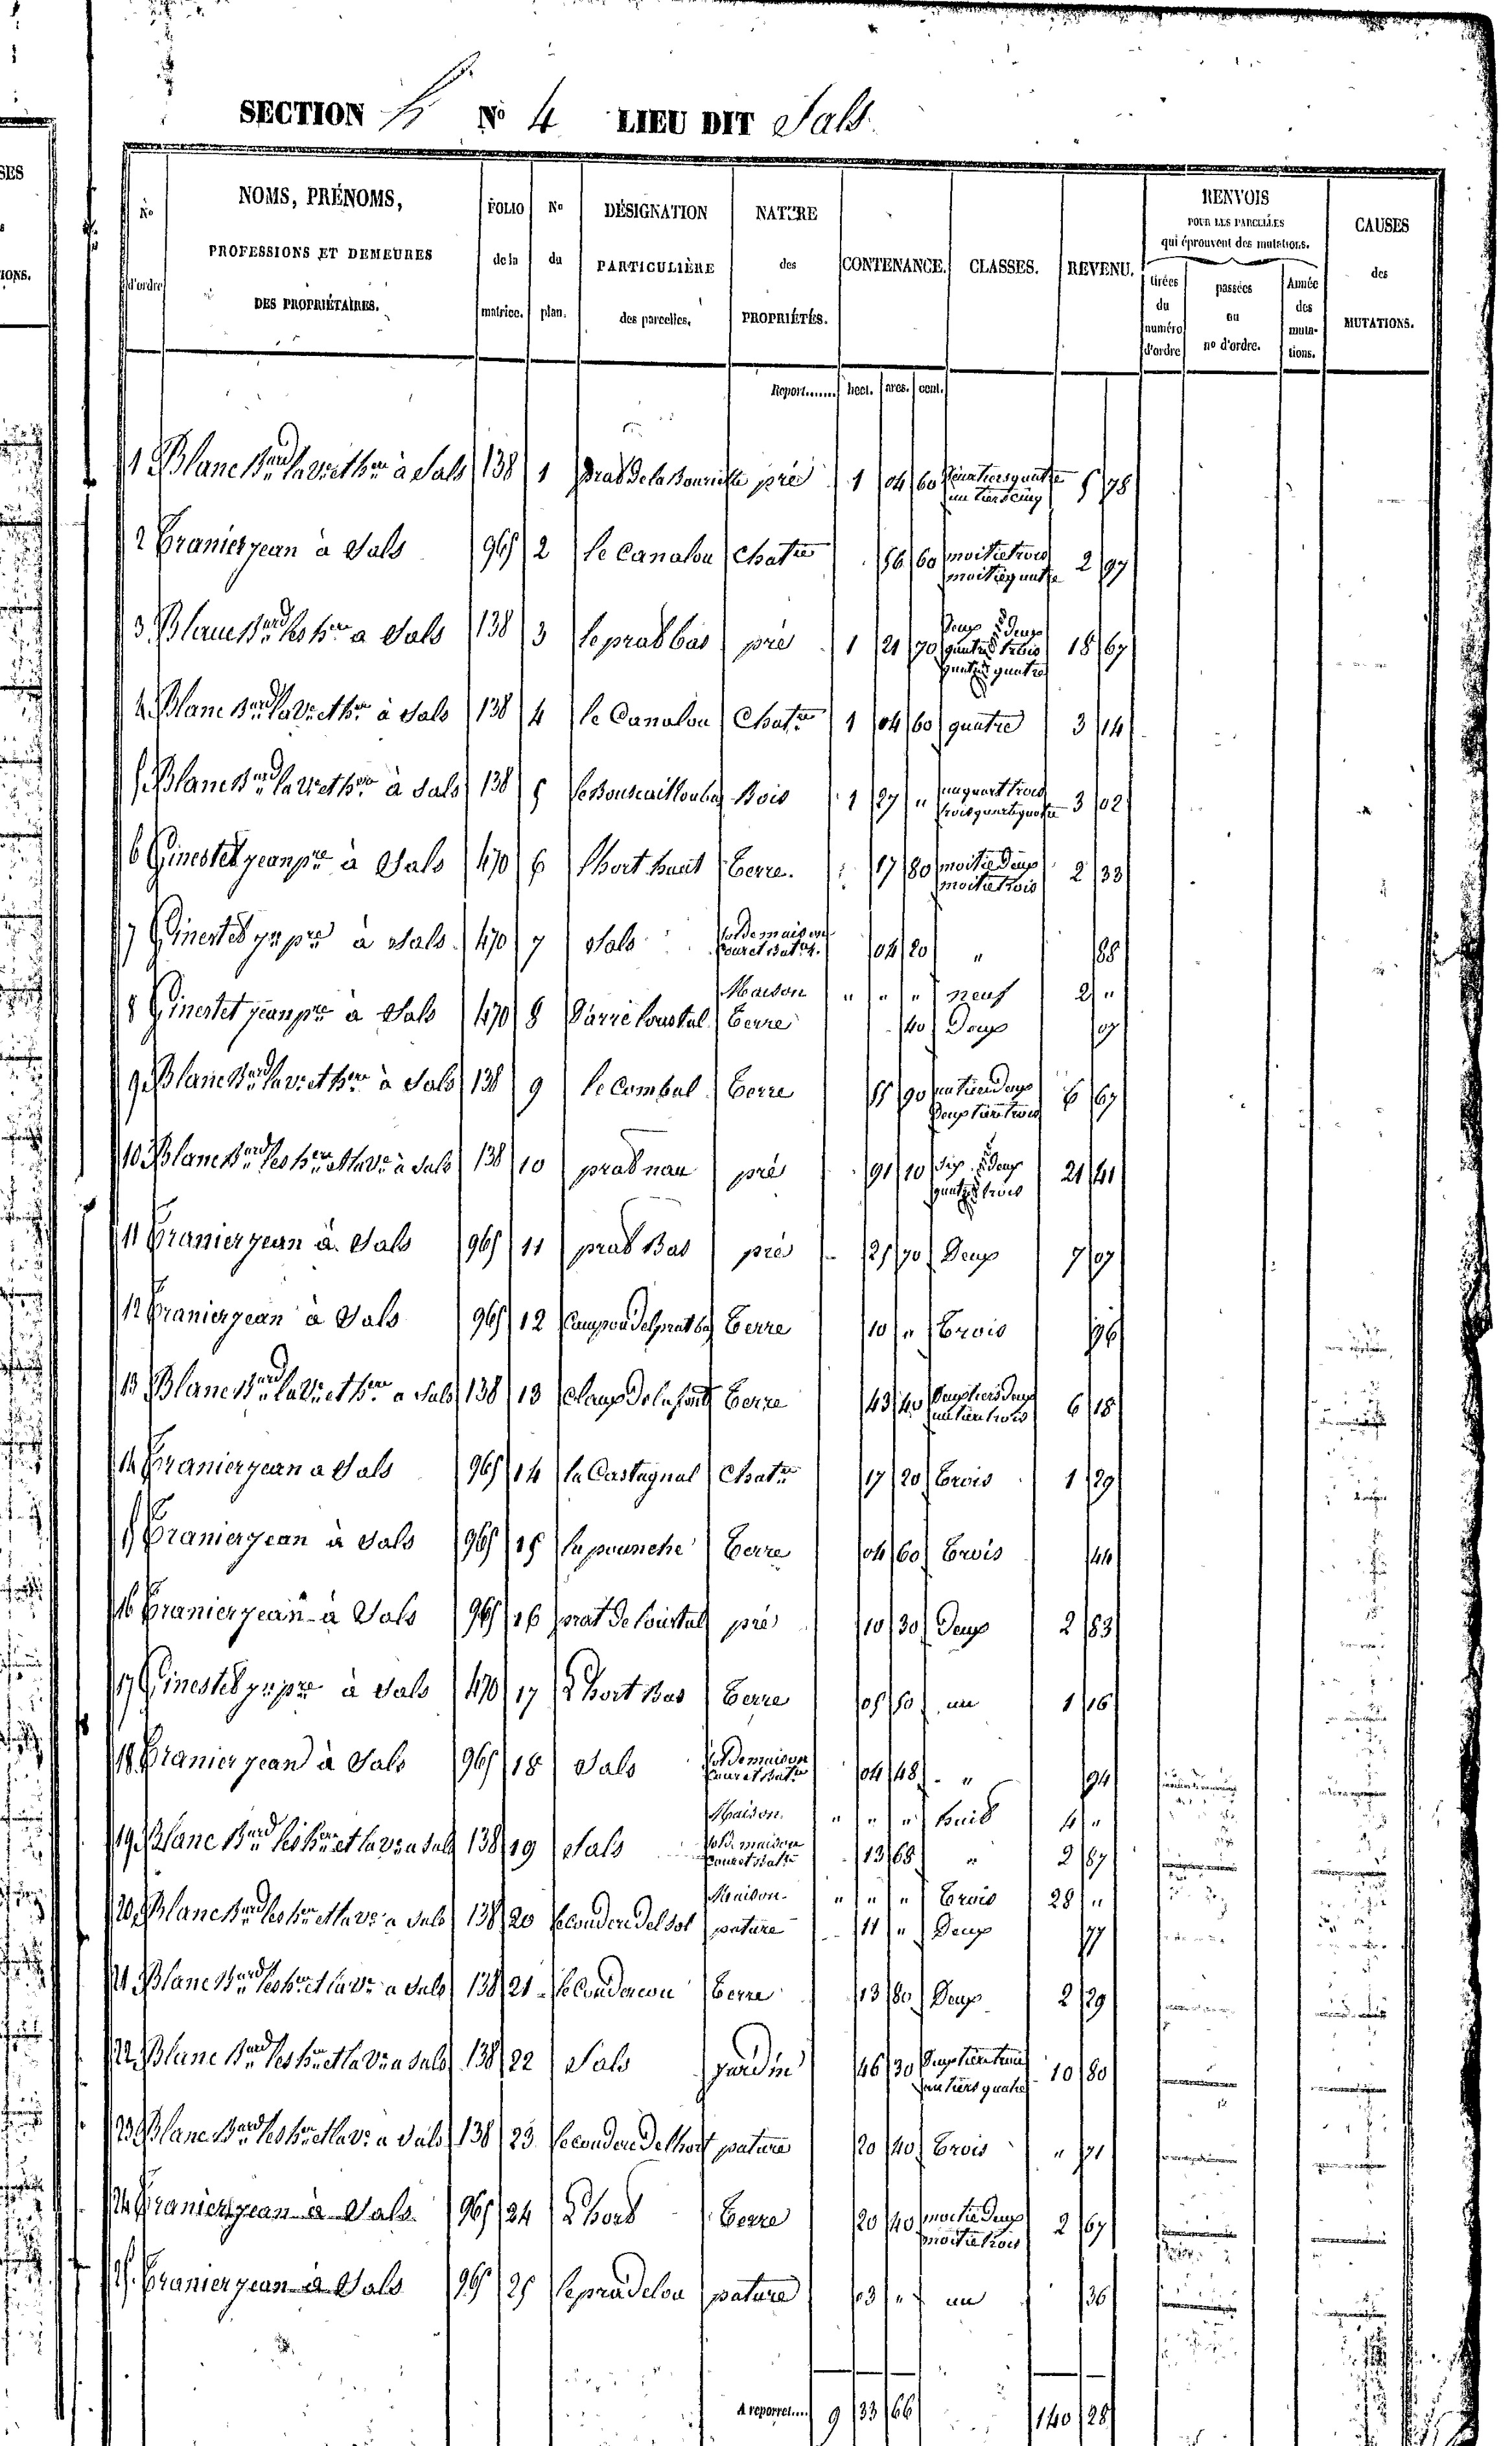 SECTION N° 4 LIEU DIT Sals
N° d'ordre
NOMS, PRÉNOMS, PROFESSIONS ET DEMEURES DES PROPRIÉTAIRES.
FOLIO de la matrice.
N° du plan.
DÉSIGNATION PARTICULIÈRE des parcelles.
NATURE des PROPRIÉTÉS.
CONTENANCE.
CLASSES.
REVENU.
RENVOIS POUR LES PARCELLES qui éprouvent des mutations.
tirées du numéro d'ordre
passées au no d'ordre.
Année des mutations.
CAUSES des MUTATIONS.
Report....... hect. ares. cent.
1 Blanc Bernard la vve et hers à Sals 138 1 prat de la pré 1 04 60 deux tiers quatre un tiers cinq 5 78
2 Granier jean à Sals 965 2 le Canalou Chatre 56 60 moitié trois moitié quatre 2 97
3 Blanc Bernard les hers a Sals 138 3 le prat bas pré 1 21 70 deux 5e deux quatre trois quatre 18 67
4 Blanc Bernard la vve et hers à Sals 138 4 le Canalou Chatre 1 04 60 quatre 3 14
5 Blanc Bernard la vve et hers à Sals 138 5 Bois 1 27 " un quart trois trois quarts quatre 3 02
6 Ginestet jean pre à Sals 470 6 lhort haut Terre 17 80 moitié deux moitié trois 2 33
7 Ginestet jn pre à Sals 470 7 Sals Sol de maison cour et batt. 04 20 " 88
Maison " " " neuf 2 "
8 Ginestet jean pre à Sals 470 8 Darré loustal Terre 40 Deux 07
9 Blanc Bernard la vve et hers à Sals 138 9 le Combal Terre 55 90 un tiers deux deux tiers trois 6 67
10 Blanc Bernard les hers et la ve à Sals 138 10 prat nau pré 91 10 six deux quatre trois 21 41
11 Granier jean à Sals 965 11 prat Bas pré 25 70 Deux 7 07
12 Granier jean à Sals 965 12 Terre 10 " Trois 96
13 Blanc Bernard la vve et hers a Sals 138 13 Claux de la font Terre 43 40 deux tiers deux un tiers trois 6 18
14 Granier jean a Sals 965 14 la Castagnal Chatre 17 20 Trois 1 29
15 Granier jean à Sals 965 15 la pounche Terre 04 60 Trois 44
16 Granier jean à Sals 965 16 prat de loustal pré 10 30 Deux 2 83
17 Ginestet jn pre à Sals 470 17 Lhort Bas Terre 05 50 un 1 16
18 Granier jean à Sals 965 18 Sals Sol de maison cour et batt 04 48 " 94
Maison " " " huit 4 "
19 Blanc Bernard les hers et la ve a Sals 138 19 Sals Sol de maison cour et batt 13 68 " 2 87
Maison " " " Trois 28 "
20 Blanc Bernard les hers et la ve a Sals 138 20 le couderc del sol pature 11 " Deux 77
21 Blanc Bernard les hers et la ve a Sals 138 21 le coudercou Terre 13 80 Deux 2 29
22 Blanc Bernard les hers et la ve a Sals 138 22 Sals jardin 46 30 deux tiers trois un tiers quatre 10 80
23 Blanc Bernard les hers et la ve a Sals 138 23 le couderc de lhort pature 20 40 Trois " 71
24 Granier jean à Sals 965 24 Lhort Terre 20 40 moitié deux moitié trois 2 67
25 Granier jean à Sals 965 25 le pradelou pature 03 " un 36
A reporter..... 9 33 66 140 28